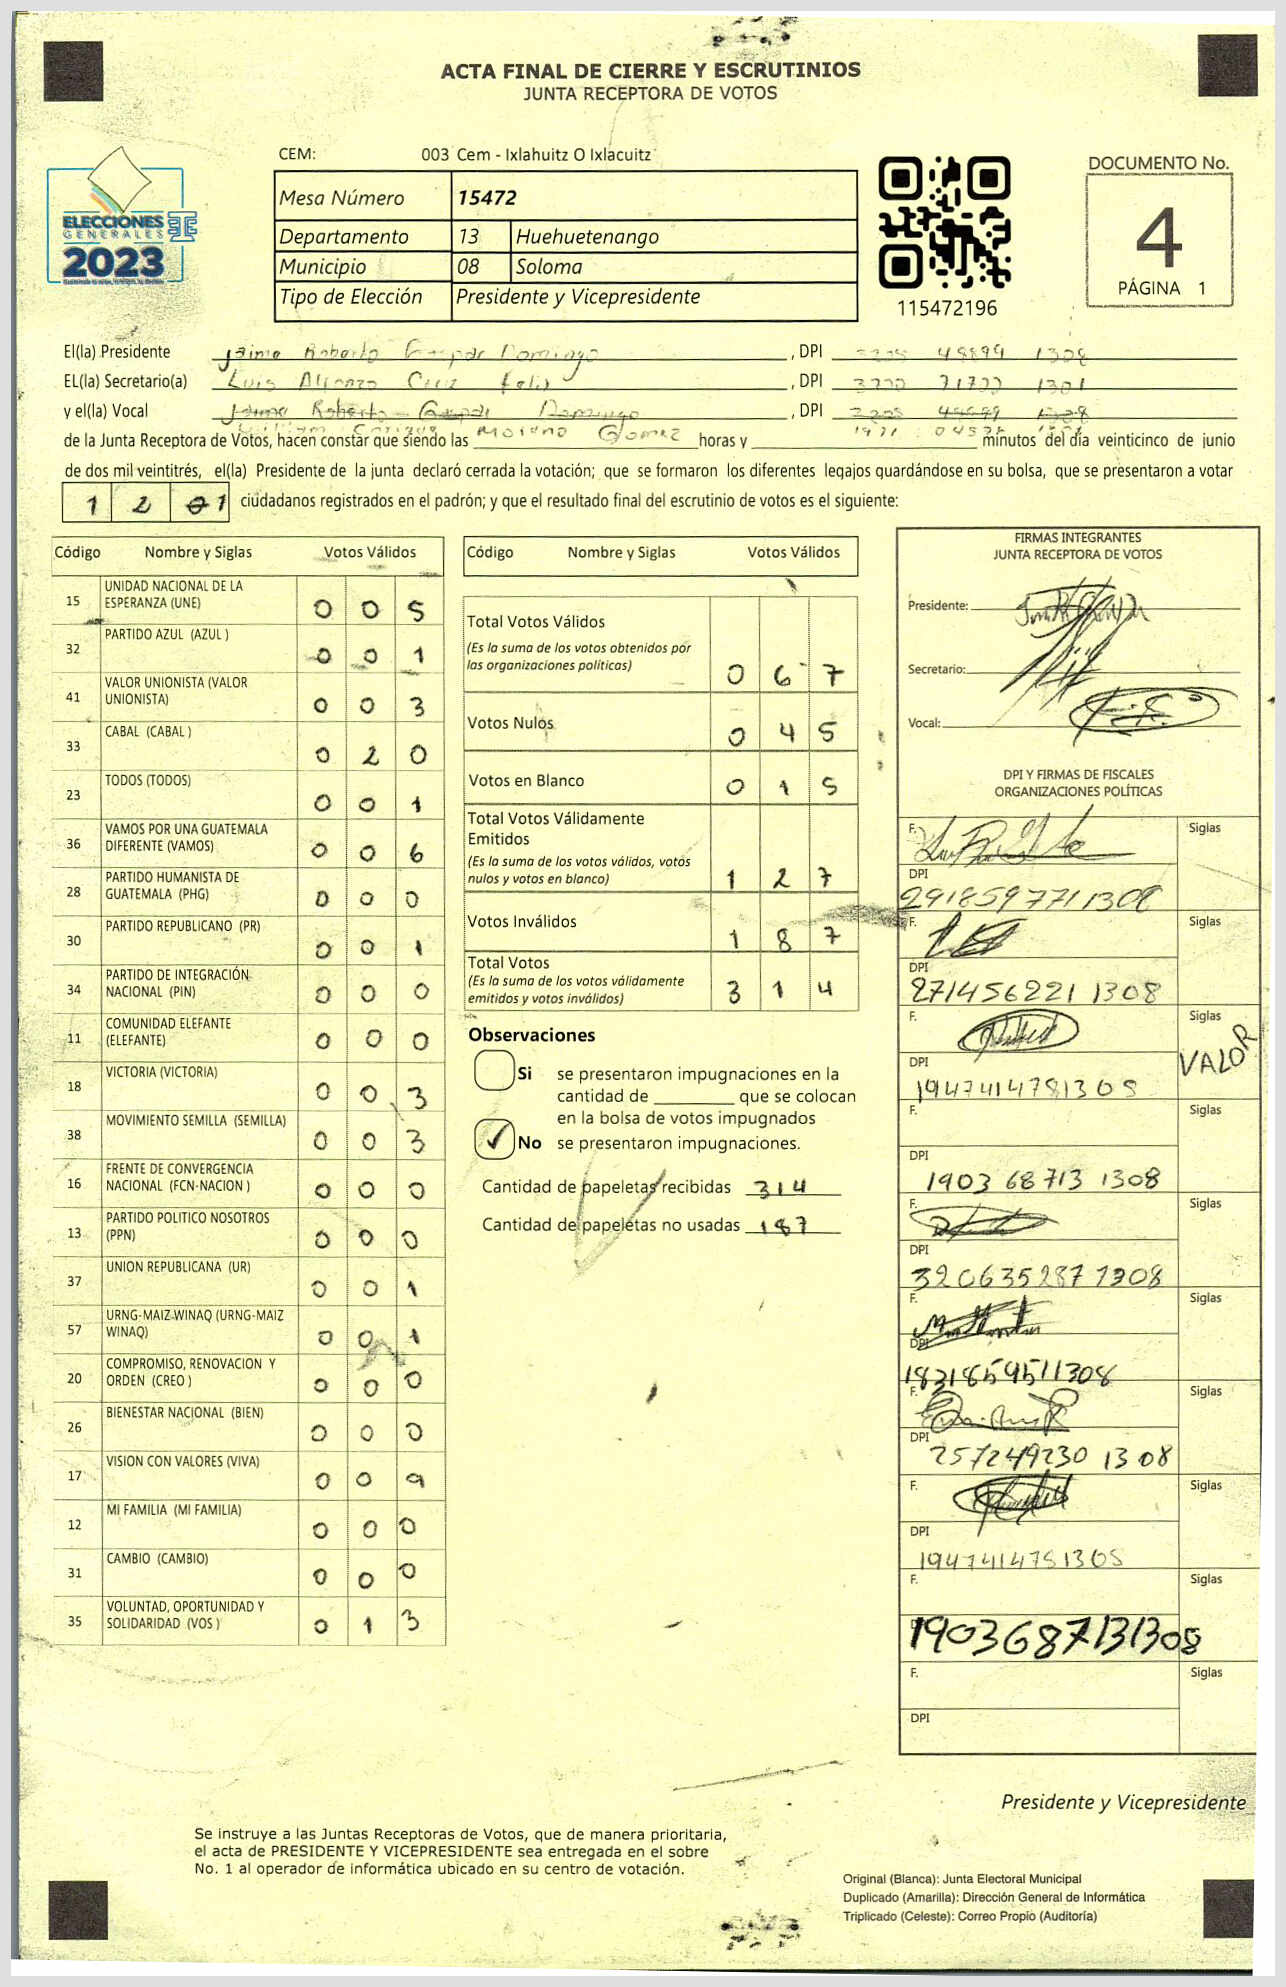 ACTA FINAL DE CIERRE Y ESCRUTINIOS
JUNTA RECEPTORA DE VOTOS
CEM: 003 Cem - Ixlahuitz O Ixlacuitz
ELECCIONES
GENERALES
2023
Mesa Número 15472
Departamento 13 Huehuetenango
Municipio 08 Soloma
Tipo de Elección Presidente y Vicepresidente
115472196
DOCUMENTO No.
4
PÁGINA 1
El(la) Presidente Jaime Roberto Gaspar Domingo , DPI 48899 1308
EL(la) Secretario(a) Luis Alfonzo Cruz , DPI 1301
y el(la) Vocal Jaime Roberto Domingo , DPI
Moreno Gomez
de la Junta Receptora de Votos, hacen constar que siendo las horas y minutos del día veinticinco de junio
de dos mil veintitrés, el(la) Presidente de la junta declaró cerrada la votación; que se formaron los diferentes legajos guardándose en su bolsa, que se presentaron a votar
1 2 1 ciudadanos registrados en el padrón; y que el resultado final del escrutinio de votos es el siguiente:
Código Nombre y Siglas Votos Válidos
15 UNIDAD NACIONAL DE LA
ESPERANZA (UNE) 0 0 5
32 PARTIDO AZUL (AZUL ) 0 0 1
41 VALOR UNIONISTA (VALOR
UNIONISTA) 0 0 3
33 CABAL (CABAL ) 0 2 0
23 TODOS (TODOS) 0 0 1
36 VAMOS POR UNA GUATEMALA
DIFERENTE (VAMOS) 0 0 6
28 PARTIDO HUMANISTA DE
GUATEMALA (PHG) 0 0 0
30 PARTIDO REPUBLICANO (PR) 0 0 1
34 PARTIDO DE INTEGRACIÓN
NACIONAL (PIN) 0 0 0
11 COMUNIDAD ELEFANTE
(ELEFANTE) 0 0 0
18 VICTORIA (VICTORIA) 0 0 3
38 MOVIMIENTO SEMILLA (SEMILLA) 0 0 3
16 FRENTE DE CONVERGENCIA
NACIONAL (FCN-NACION ) 0 0 0
13 PARTIDO POLITICO NOSOTROS
(PPN) 0 0 0
37 UNION REPUBLICANA (UR) 0 0 1
57 URNG-MAIZ-WINAQ (URNG-MAIZ
WINAQ) 0 0 1
20 COMPROMISO, RENOVACION Y
ORDEN (CREO ) 0 0 0
26 BIENESTAR NACIONAL (BIEN) 0 0 0
17 VISION CON VALORES (VIVA) 0 0 9
12 MI FAMILIA (MI FAMILIA) 0 0 0
31 CAMBIO (CAMBIO) 0 0 0
35 VOLUNTAD, OPORTUNIDAD Y
SOLIDARIDAD (VOS ) 0 1 3
Código Nombre y Siglas Votos Válidos
Total Votos Válidos
(Es la suma de los votos obtenidos por
las organizaciones políticas) 0 6 7
Votos Nulos 0 4 5
Votos en Blanco 0 1 5
Total Votos Válidamente
Emitidos
(Es la suma de los votos válidos, votos
nulos y votos en blanco) 1 2 7
Votos Inválidos 1 8 7
Total Votos
(Es la suma de los votos válidamente
emitidos y votos inválidos) 3 1 4
Observaciones
Si se presentaron impugnaciones en la
cantidad de ________ que se colocan
en la bolsa de votos impugnados
No se presentaron impugnaciones.
Cantidad de papeletas recibidas 314
Cantidad de papeletas no usadas 187
FIRMAS INTEGRANTES
JUNTA RECEPTORA DE VOTOS
Presidente:
Secretario:
Vocal:
DPI Y FIRMAS DE FISCALES
ORGANIZACIONES POLÍTICAS
F. Siglas
DPI
2918597711308
F. Siglas
DPI
271456221 1308
F. Siglas
VALOR
DPI
1947414781308
F. Siglas
DPI
1903 68 713 1308
F. Siglas
DPI
3206352871308
F. Siglas
DPI
1831859511308
F. Siglas
DPI
257249230 1308
F. Siglas
DPI
1947414781308
F. Siglas
1903687131308
F. Siglas
DPI
Presidente y Vicepresidente
Se instruye a las Juntas Receptoras de Votos, que de manera prioritaria,
el acta de PRESIDENTE Y VICEPRESIDENTE sea entregada en el sobre
No. 1 al operador de informática ubicado en su centro de votación.
Original (Blanca): Junta Electoral Municipal
Duplicado (Amarilla): Dirección General de Informática
Triplicado (Celeste): Correo Propio (Auditoría)